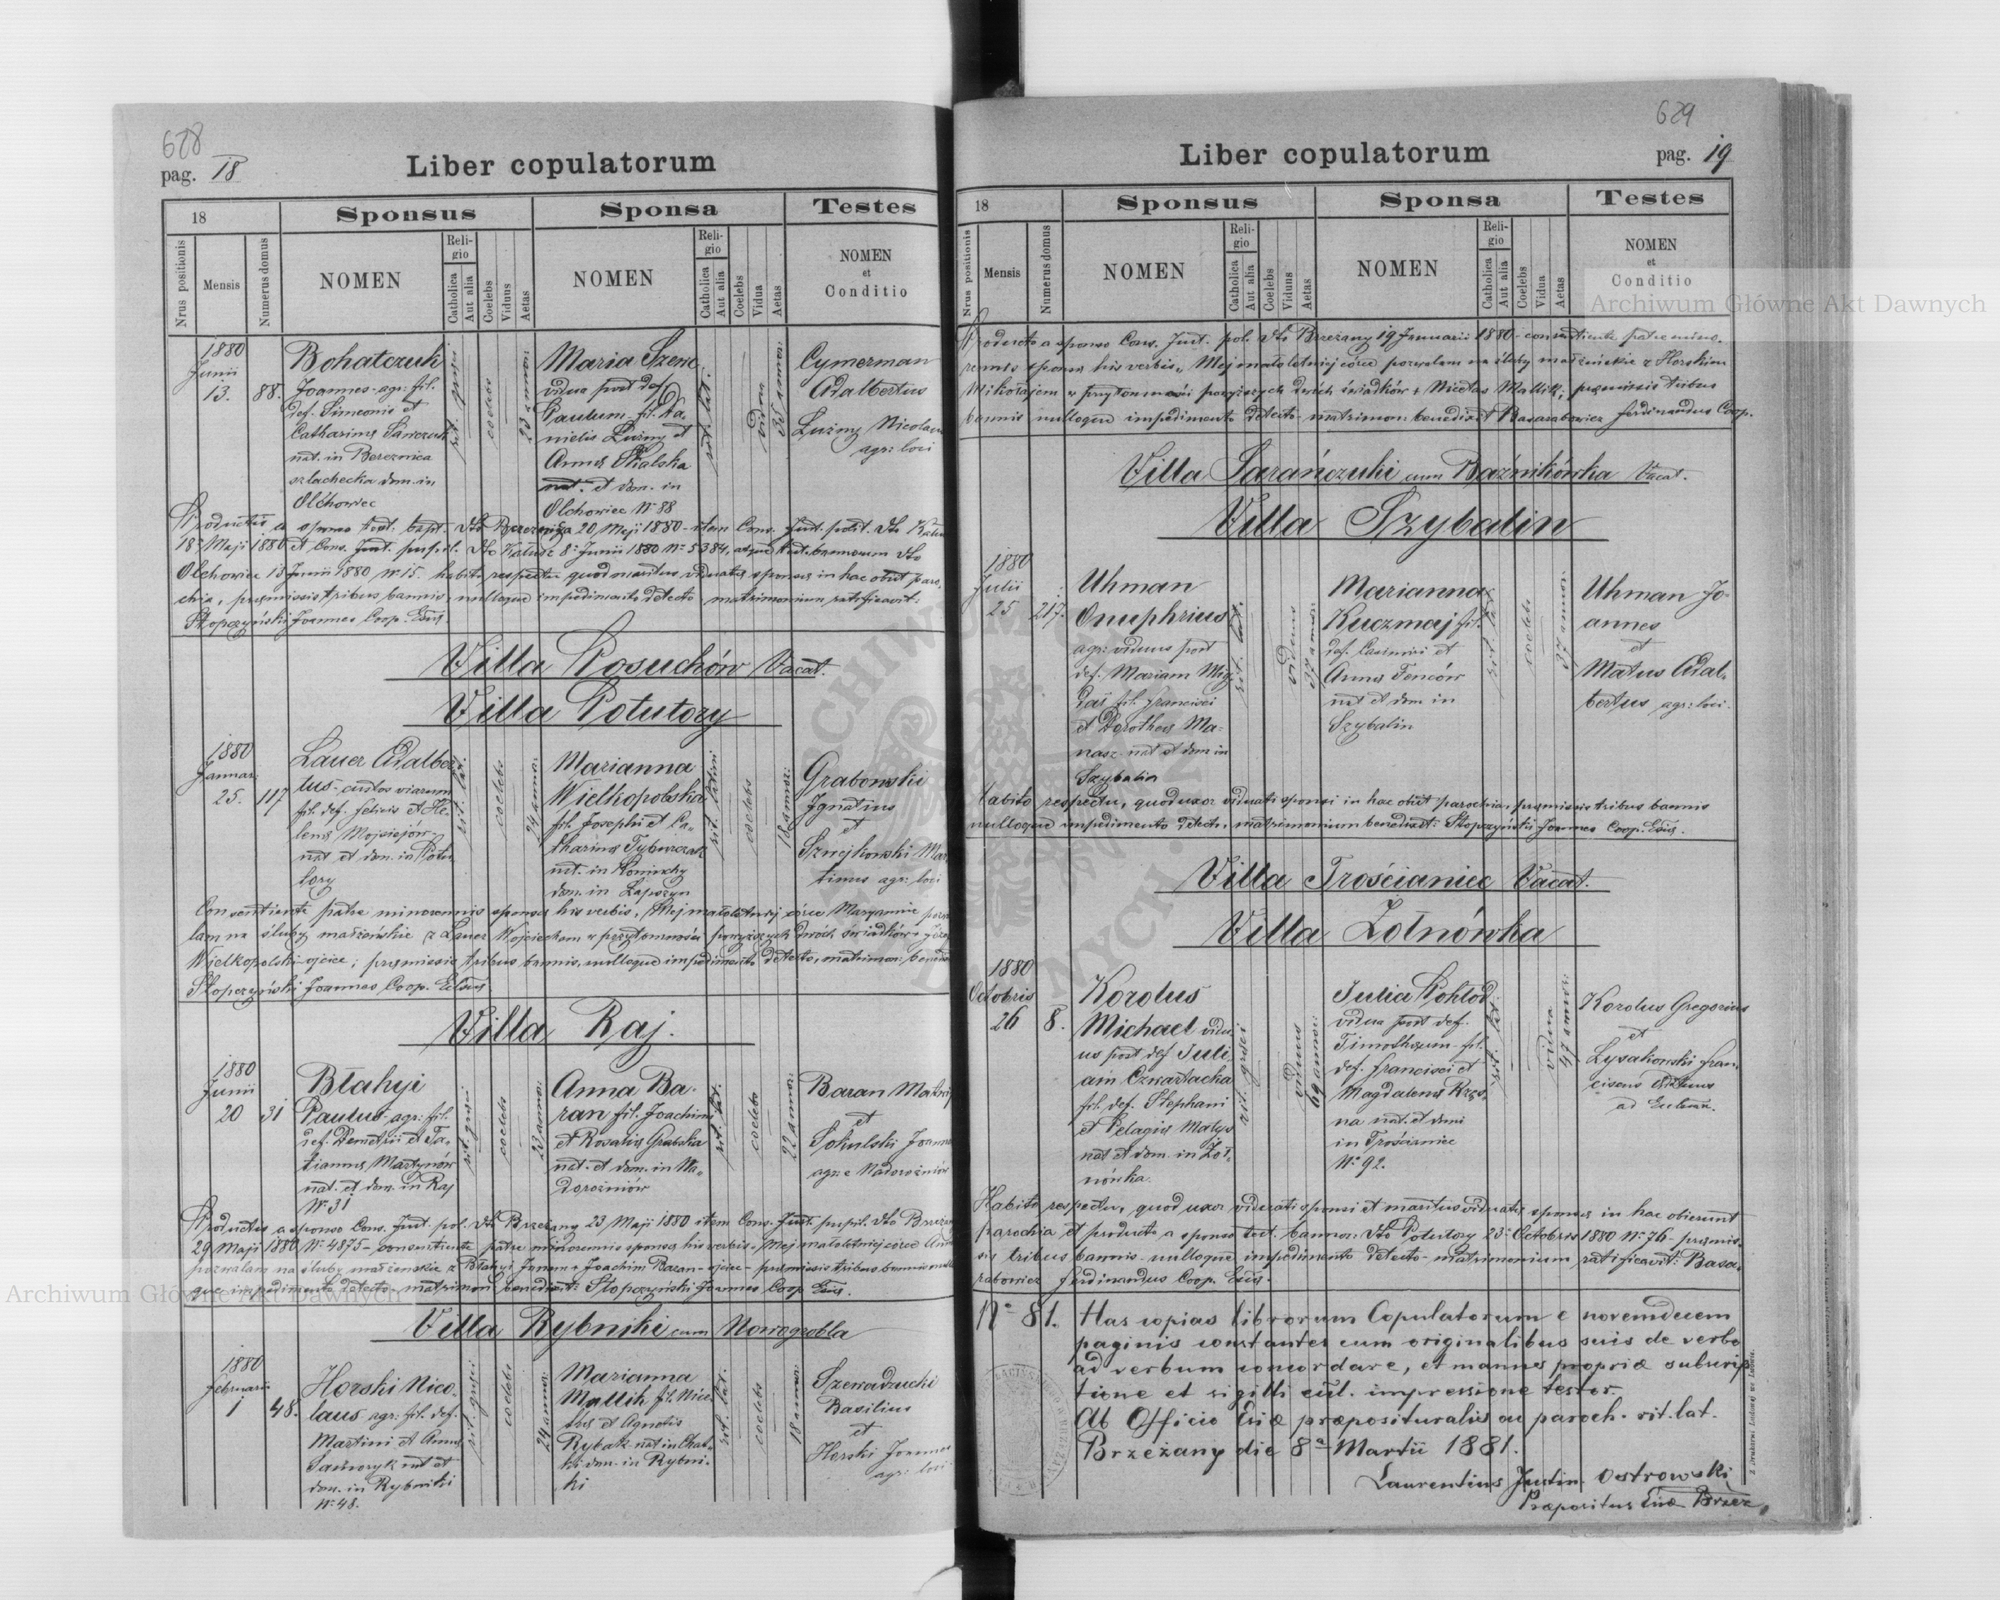 628
pag. 18
Liber copulatorum
18
Sponsus
Sponsa
Testes
Nrus positionis
Mensis
Numerus domus
NOMEN
Religio
Catholica
Aut alia
Coelebs
Viduus
Aetas
NOMEN
Religio
Catholica
Aut alia
Coelebs
Vidua
Aetas
NOMEN
et
Conditio
1880
Junii
13.
88.
Bohatczuk
Joannes agr. fil.
def. Simeonis et
Catharinæ
nat. in Bereznica
szlachecka dom. in
Olchowiec
coelebs
23 annor.
Maria
vidua post def.
Paulum fil. Da-
nielis Luzny et
Annæ Skalska
nat. et dom. in
Olchowiec Nr 88
rit. lat.
vidua
Cymerman
Adalbertus
Luzny Nicolaus
agr. loci
Productis a sponso test. bapt. dto Bereznica 20 Maji 1880 item Cons. Just. polit. dto
18 Maji 1880 et Cons. Just. pupil. dto Kalusz 8 Junii 1880 Nr 5384, atque test. bannorum dto
Olchowiec 13 Junii 1880 Nr 15. habito respectu quod maritus viduatæ sponsæ in hac obiit paro-
chia, præmissis tribus bannis, nulloque impedimento detecto matrimonium ratificavit:
Stopczyński Joannes Coop. Ecclæ.
Villa Posuchów Vacat.
Villa Potutory
1880
Januar.
25.
117
Lauer Adalber-
tus custos viarum
fil. def. Felicis et He-
lenæ Mojsiejów
nat. et dom. in Potu-
tory
rit. lat.
coelebs
24 annor.
Marianna
Wielkopolska
fil. Josephi et Ca-
tharinæ Tyburczak
nat. in
dom. in Łapszyn
rit. latini
coelebs
18 annor.
Grabowski
Ignatius
et
Sznejkowski Mar-
tinus agr. loci
Consentiente patre minorennis sponsæ his verbis, Mej małoletniej córce Maryannie
lam na śluby małżeńskie z Lauer Wojciechem w przytomności powyższych dwóch świadków
Wielkopolski ojciec; præmissis tribus bannis, nulloque impedimento detecto, matrimon.
Stopczyński Joannes Coop. Ecclæ.
Villa Raj.
1880
Junii
20
31
Błahyj
Paulus agr. fil.
def. Demetrii et Ta-
tiannæ Martynów
nat. et dom. in Raj
Nr 31
rit. græci
coelebs
23 annor.
Anna Ba-
ran fil. Joachimi
et Rosaliæ Grabska
nat. et dom. in Na-
dorożniów
rit. lat.
coelebs
22 annor.
Baran
et
Sokulski
Productis a sponso Cons. Just. pol. dto Brzeżany 23 Maji 1880 item Cons. Just. pupil. dto
29 Maji 1880 Nr 4875 consentiente patre minorennis sponsæ his verbis Mej małoletniej córce
pozwalam na śluby małżeńskie z Błahyj Joachim Baran ojciec præmissis tribus bannis
que impedimento detecto matrimon. benedixit: Stopczyński Joannes Coop. Ecclæ.
Villa Rybniki cum Nowogrobla
1880
Februarii
1
48.
Horski Nico-
laus agr. fil. def.
Martini et Annæ
nat. et
dom. in Rybniki
Nr 48.
rit. græci
coelebs
24 annor.
Marianna
Mallik fil. Nico-
lai et Agnetis
Rybak nat. in
dom. in Rybni-
ki
rit. lat.
coelebs
18 annor.
Szewadzucki
Basilius
et
Horski Joannes
agr. loci
629
pag. 19
Liber copulatorum
18
Sponsus
Sponsa
Testes
Nrus positionis
Mensis
Numerus domus
NOMEN
Religio
Catholica
Aut alia
Coelebs
Viduus
Aetas
NOMEN
Religio
Catholica
Aut alia
Coelebs
Vidua
Aetas
NOMEN
et
Conditio
Producto a sponso Cons. Just. pol. dto Brzeżany 19 Januarii 1880 consentiente patre mino-
rennis sponsæ his verbis, Mej małoletniej córce pozwalam na śluby małżeńskie z Horskim
Mikołajem w przytomności powyższych dwóch świadków Mallik; præmissis tribus
bannis nulloque impedimento detecto matrimon. benedixit Basarabowicz Ferdinandus Coop.
Villa Sarańczuki cum Baźnikówka Vacat.
Villa Szybalin
1880
Julii
25
217.
Uhman
Onuphrius
agr. viduus post
def. Mariam
fil. Francisci
et Dorotheæ Ma-
nasz nat. et dom. in
Szybalin
rit. lat.
viduus
37 annor.
Marianna
Kuczmaj fil.
def. Casimiri et
Annæ Fenców
nat. et dom. in
Szybalin
rit. lat.
coelebs
Uhman Jo-
annes
et
Matus Adal-
bertus agr. loci.
Habito respectu, quod uxor viduati sponsi in hac obiit parochia, præmissis tribus bannis
nulloque impedimento detecto, matrimonium benedixit: Stopczyński Joannes Coop. Ecclæ.
Villa Trościaniec Vacat.
Villa Żolnówka
1880
Octobris
26
8.
Korolus
Michael vidu-
us post def. Juli-
am Czwartacka
fil. def. Stephani
et Pelagiæ
nat. et dom. in Żoł-
nówka.
rit. græci
viduus
69 annor.
Julia
vidua post def.
Timotheum fil.
def. Francisci et
Magdalenæ
na nat. et domi
in Trościaniec
Nr 92.
rit. lat.
vidua
47 annor.
Korolus Gregorius
et
Łysakowski Fran-
ciscus
Habito respectu, quod uxor viduati sponsi et maritus viduatæ sponsæ in hac obierunt
parochia et producto a sponso test. bannor. dto Potutory 23 Octobris 1880 Nr 76 præmis-
sis tribus bannis nulloque impedimento detecto matrimonium ratificavit: Basa-
rabowicz Ferdinandus Coop. Ecclæ.
Nr 81. Has copias librorum Copulatorum e novemdecem
paginis constantes cum originalibus suis de verbo
ad verbum concordare, et manus propriæ subscrip-
tione et sigilli eccl. impressione testor.
Ab Officio Ecclæ præposituralis ac paroch. rit. lat.
Brzeżany die 8a Martii 1881.
Laurentius Justin. Ostrowski
Præpositus Ecclæ Brzez.
Archiwum Główne Akt Dawnych
Archiwum Główne Akt Dawnych